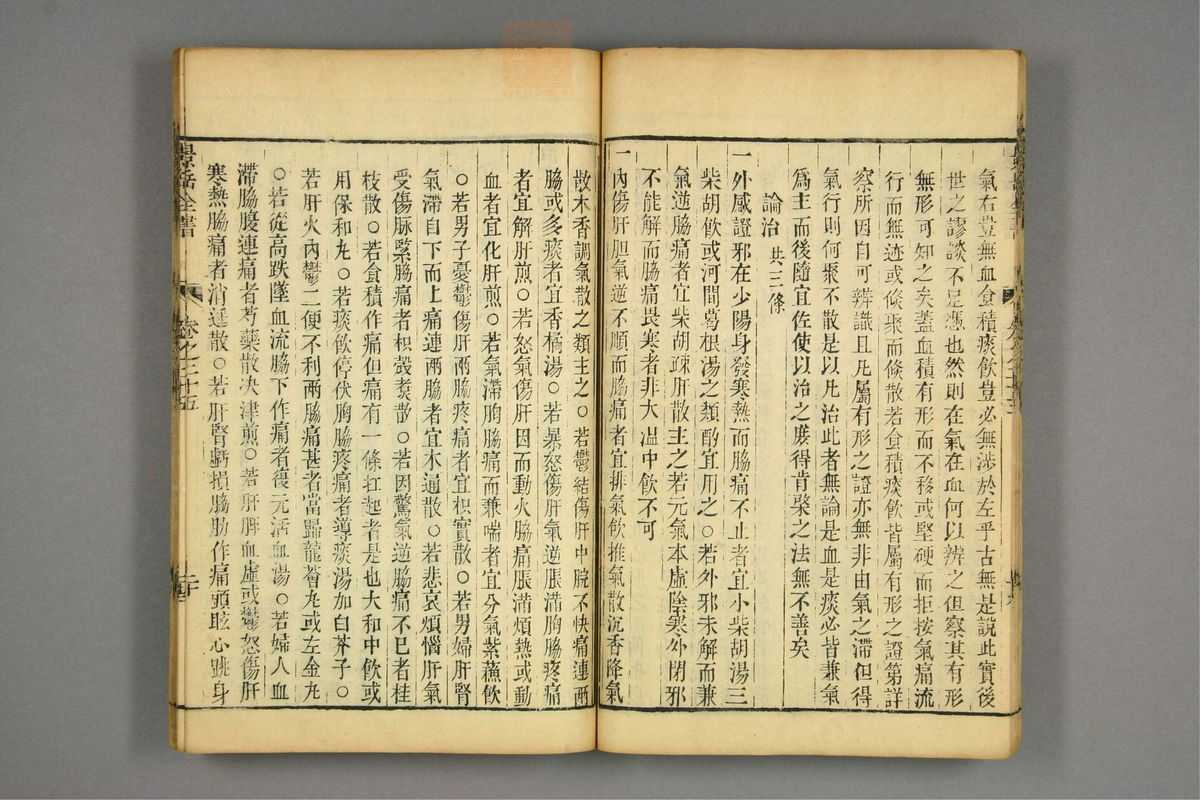 氣右豈無血食積痰飲豈必無涉於左乎古無是說此實後
世之謬談不足憑也然則在氣在血何以辨之但察其有形
無形可知之矣葢血積有形而不移或堅硬而拒按氣痛流
行而無迹或倐聚而倐散若食積痰飲皆屬有形之證第詳
察所因自可辨識且凡屬有形之證亦無非由氣之滯但得
氣行則何聚不散是以凡治此者無論是血是痰必皆兼氣
爲主而後隨宜佐使以治之庶得肯綮之法無不善矣
論治 共三條
一外感證邪在少陽身發寒熱而脇痛不止者宜小柴胡湯三
柴胡飲或河間葛根湯之類酌宜用之○若外邪未解而兼
氣逆脇痛者宜柴胡疎肝散主之若元氣本虛陰寒外閉邪
不能解而脇痛畏寒者非大温中飲不可
一內傷肝胆氣逆不順而脇痛者宜排氣飲推氣散沉香降氣
散木香調氣散之類主之○若鬱結傷肝中脘不快痛連兩
脇或多痰者宜香橘湯○若暴怒傷肝氣逆脹滿胸脇疼痛
者宜解肝煎○若怒氣傷肝因而動火脇痛脹滿煩熱或動
血者宜化肝煎○若氣滯胸脇痛而兼喘者宜分氣紫蘇飲
○若男子憂鬱傷肝兩脇疼痛者宜枳實散○若男婦肝腎
氣滯自下而上痛連兩脇者宜木通散○若悲哀煩惱肝氣
受傷脉緊脇痛者枳殼煑散○若因驚氣逆脇痛不已者桂
枝散○若食積作痛但痛有一條扛起者是也大和中飲或
用保和丸○若痰飲停伏胸脇疼痛者導痰湯加白芥子○
若肝火內鬱二便不利兩脇痛甚者當歸龍薈丸或左金丸
○若從高跌墜血流脇下作痛者復元活血湯○若婦人血
滯脇腹連痛者芍藥散决津煎○若肝脾血虛或鬱怒傷肝
寒熱脇痛者消遥散○若肝腎虧損脇肋作痛頭眩心跳身
景岳全書
卷之二十五